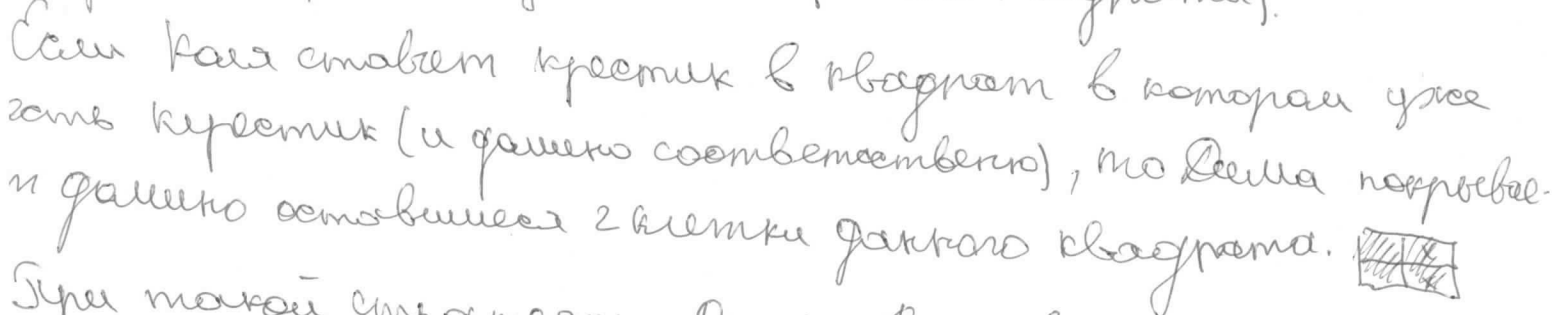 Если Коля ставит крестик в квадрат в котором уже
есть крестик (и домино соответственно), то Дима покрывае-
т домино оставшиеся 2 клетки данного квадрата.
При такой